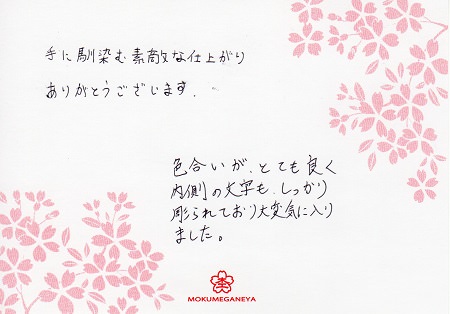 手に馴染む素敵な仕上がり
ありがとうございます.
色合いが、とても良く
内側の文字も、しっかり
彫られており大変気に入り
ました。
MOKUMEGANEYA